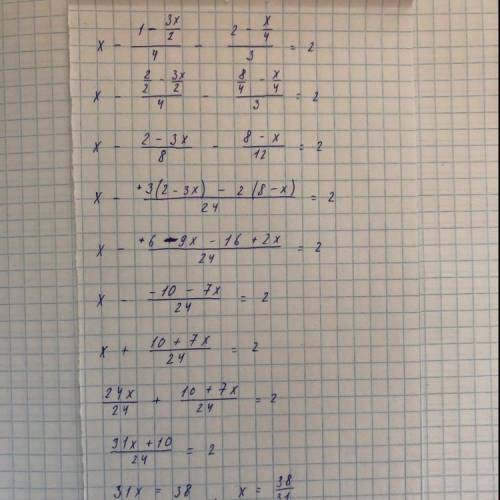 x - (1 - 3x/2)/4 - (2 - x/4)/3 = 2
x - (2/2 - 3x/2)/4 - (8/4 - x/4)/3 = 2
x - (2 - 3x)/8 - (8 - x)/12 = 2
x - (+3(2 - 3x) - 2(8 - x))/24 = 2
x - (+6 - 9x - 16 + 2x)/24 = 2
x - (-10 - 7x)/24 = 2
x + (10 + 7x)/24 = 2
24x/24 + (10 + 7x)/24 = 2
(31x + 10)/24 = 2
31x = 38, x = 38/31